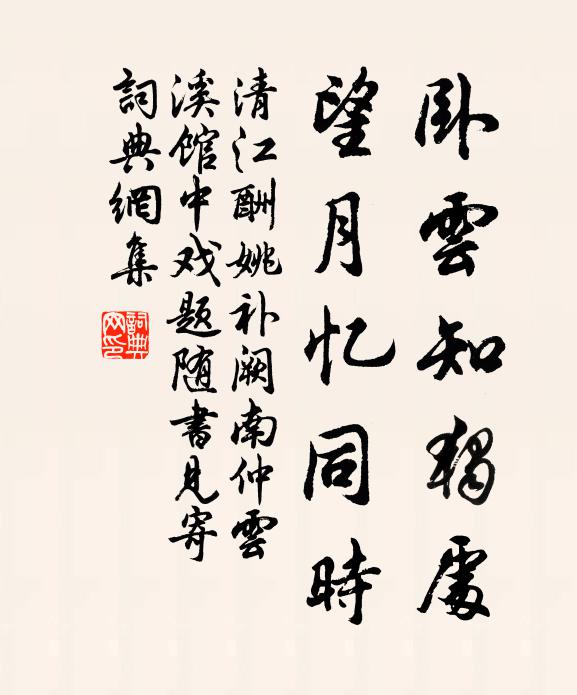 卧雲知獨處
望月忆同時
清江酬姚补阙南仲雲
溪馆中戏题随書見寄
詞典網集
詞典網印